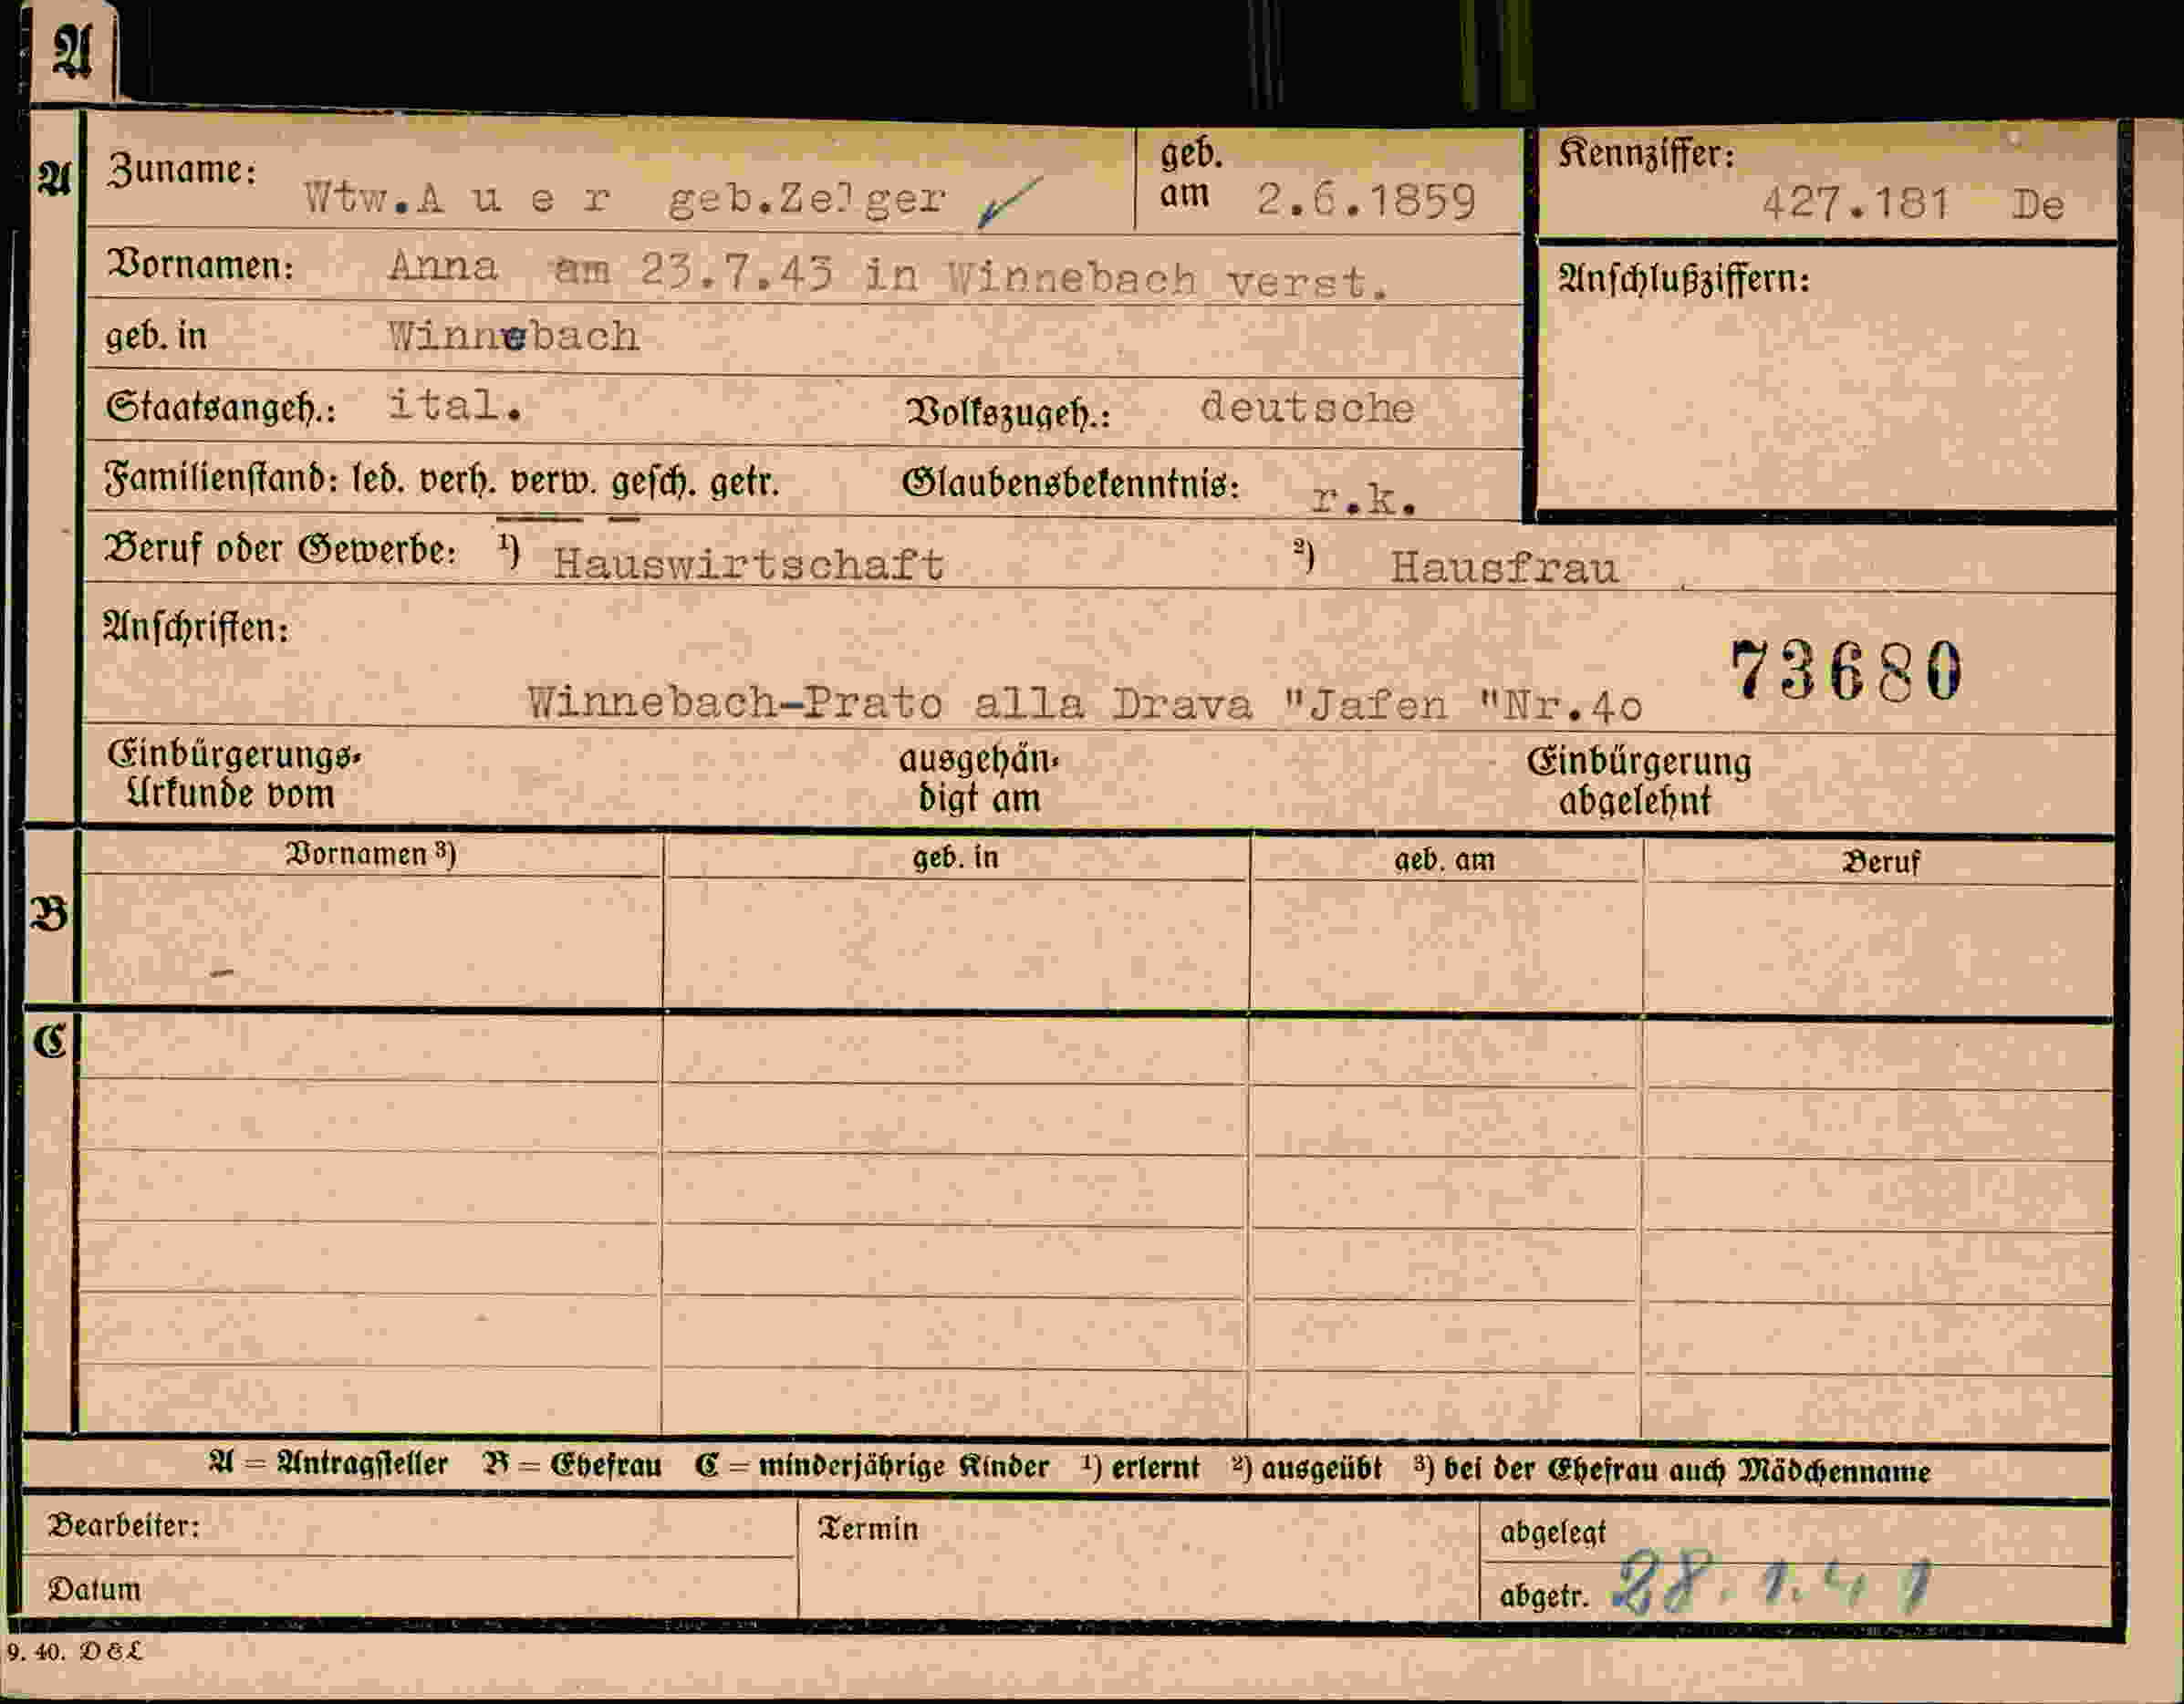 A
A
Zuname: Wtw.A u e r geb.Zelger ✓ geb. am 2.6.1859 Kennziffer: 427.181 De
Vornamen: Anna am 23.7.43 in Winnebach verst.
Anschlußziffern:
geb. in Winnebach
Staatsangeh.: ital. Volkszugeh.: deutsche
Familienstand: led. verh. verw. gesch. getr. Glaubensbekenntnis: r.k.
Beruf oder Gewerbe: ¹) Hauswirtschaft ²) Hausfrau
Anschriften:
73680
Winnebach-Prato alla Drava "Jafen "Nr.4o
Einbürgerungs- ausgehän- Einbürgerung
Urkunde vom digt am abgelehnt
Vornamen ³) geb. in geb. am Beruf
B
–
C
A = Antragsteller B = Ehefrau C = minderjährige Kinder ¹) erlernt ²) ausgeübt ³) bei der Ehefrau auch Mädchenname
Bearbeiter: Termin abgelegt
Datum abgetr. 28.1.41
9. 40. D & L